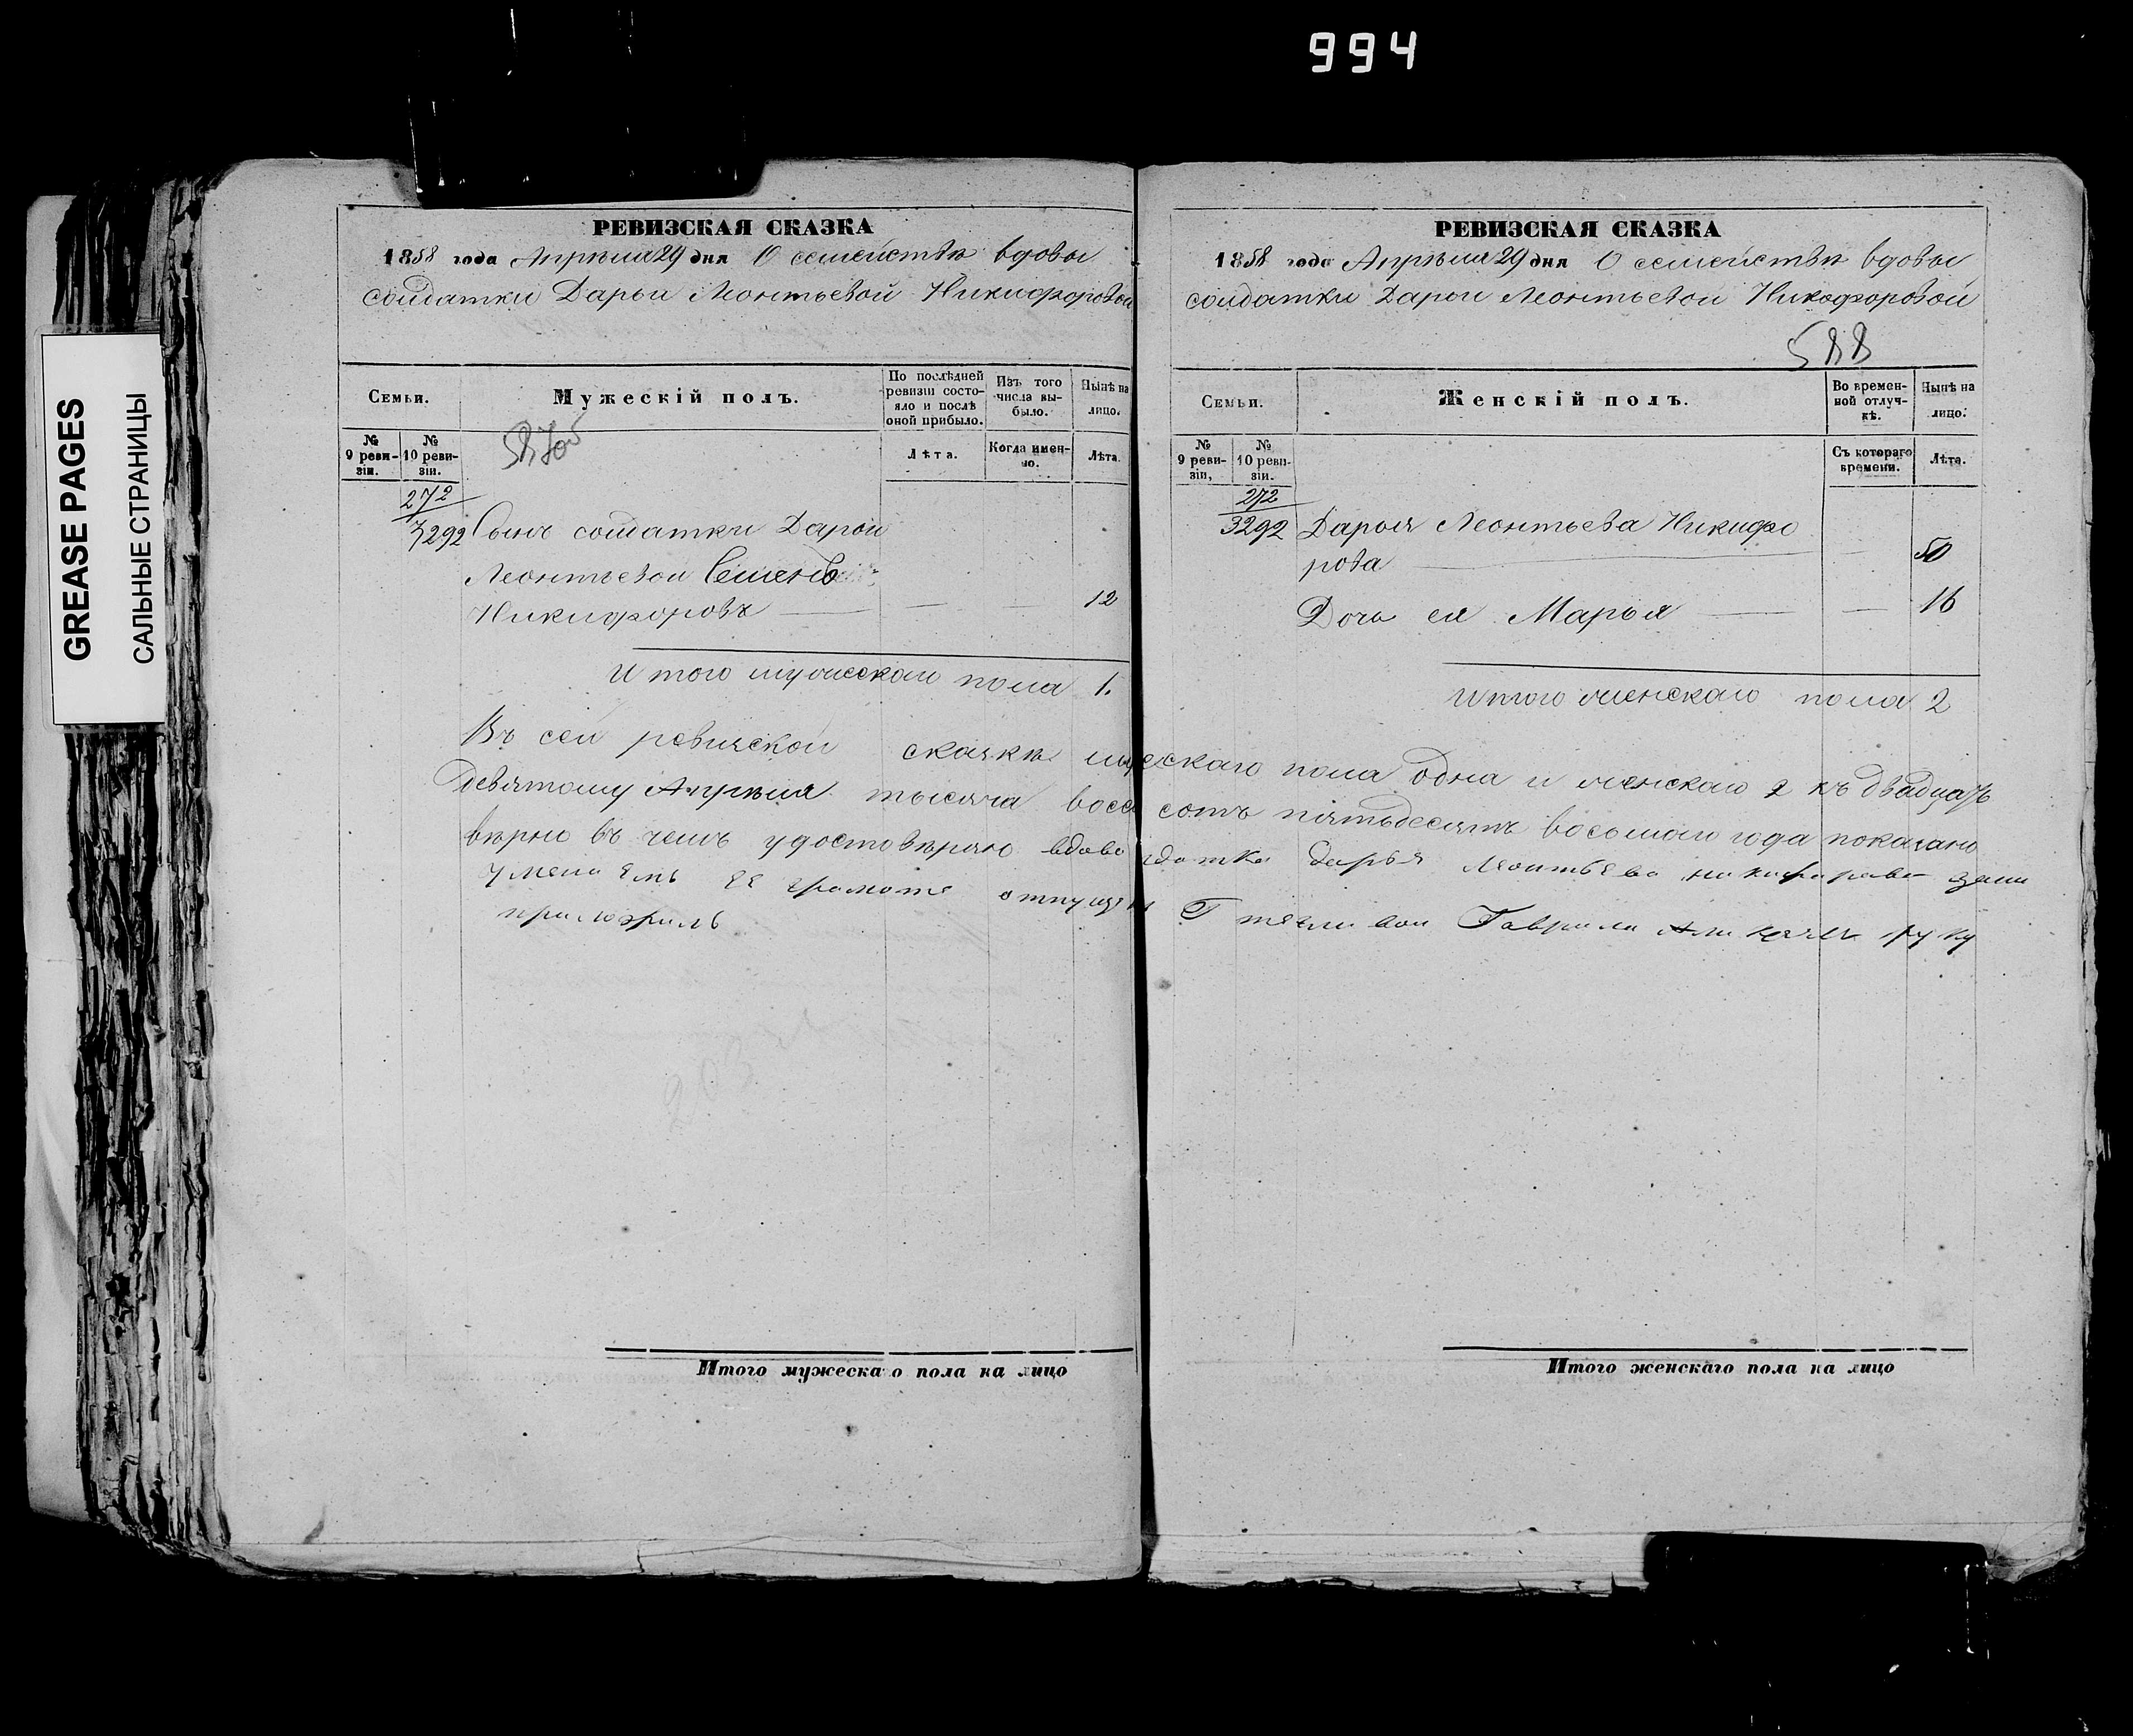 994
GREASE PAGES
САЛЬНЫЕ СТРАНИЦЫ
РЕВИЗСКАЯ СКАЗКА
1858 года Апрѣля 29 дня О семействѣ вдовы
солдатки Дарьи Леонтьевой Никифоровой
Семьи.
Мужескій полъ.
По послѣдней ревизіи состояло и послѣ оной прибыло.
Изъ того числа выбыло.
Нынѣ на лицо.
№ 9 ревизіи.
№ 10 ревизіи.
Лѣта.
Когда именно.
Лѣта.
272
3292 Сынъ солдатки Дарьи
Леонтьевой Семенъ
Никифоровъ — — — 12
Итого мужескаго пола 1.
РЕВИЗСКАЯ СКАЗКА
1858 года Апрѣля 29 дня О семействѣ вдовы
солдатки Дарьи Леонтьевой Никофоровой
588
Семьи.
Женскій полъ.
Во временной отлучкѣ.
Нынѣ на лицо.
№ 9 ревизіи,
№ 10 ревизіи.
Съ котораго времени.
Лѣта.
272
3292 Дарья Леонтьева Никифо
рова — — 50
Дочь ея Марья — — 16
Итого женскаго пола 2
Въ сей ревизской сказкѣ мужескаго пола одна и женскаго 2 къ двадцать
девятому Апрѣля тысяча восемсотъ пятьдесятъ восьмаго года показано
вѣрно въ чемъ удостовѣряю вдова солдатка дарья леонтьева никифорова за не
умениемъ ее грамоте отпущен Гаврила руку
приложилъ
Итого мужескаго пола на лицо
Итого женскаго пола на лицо